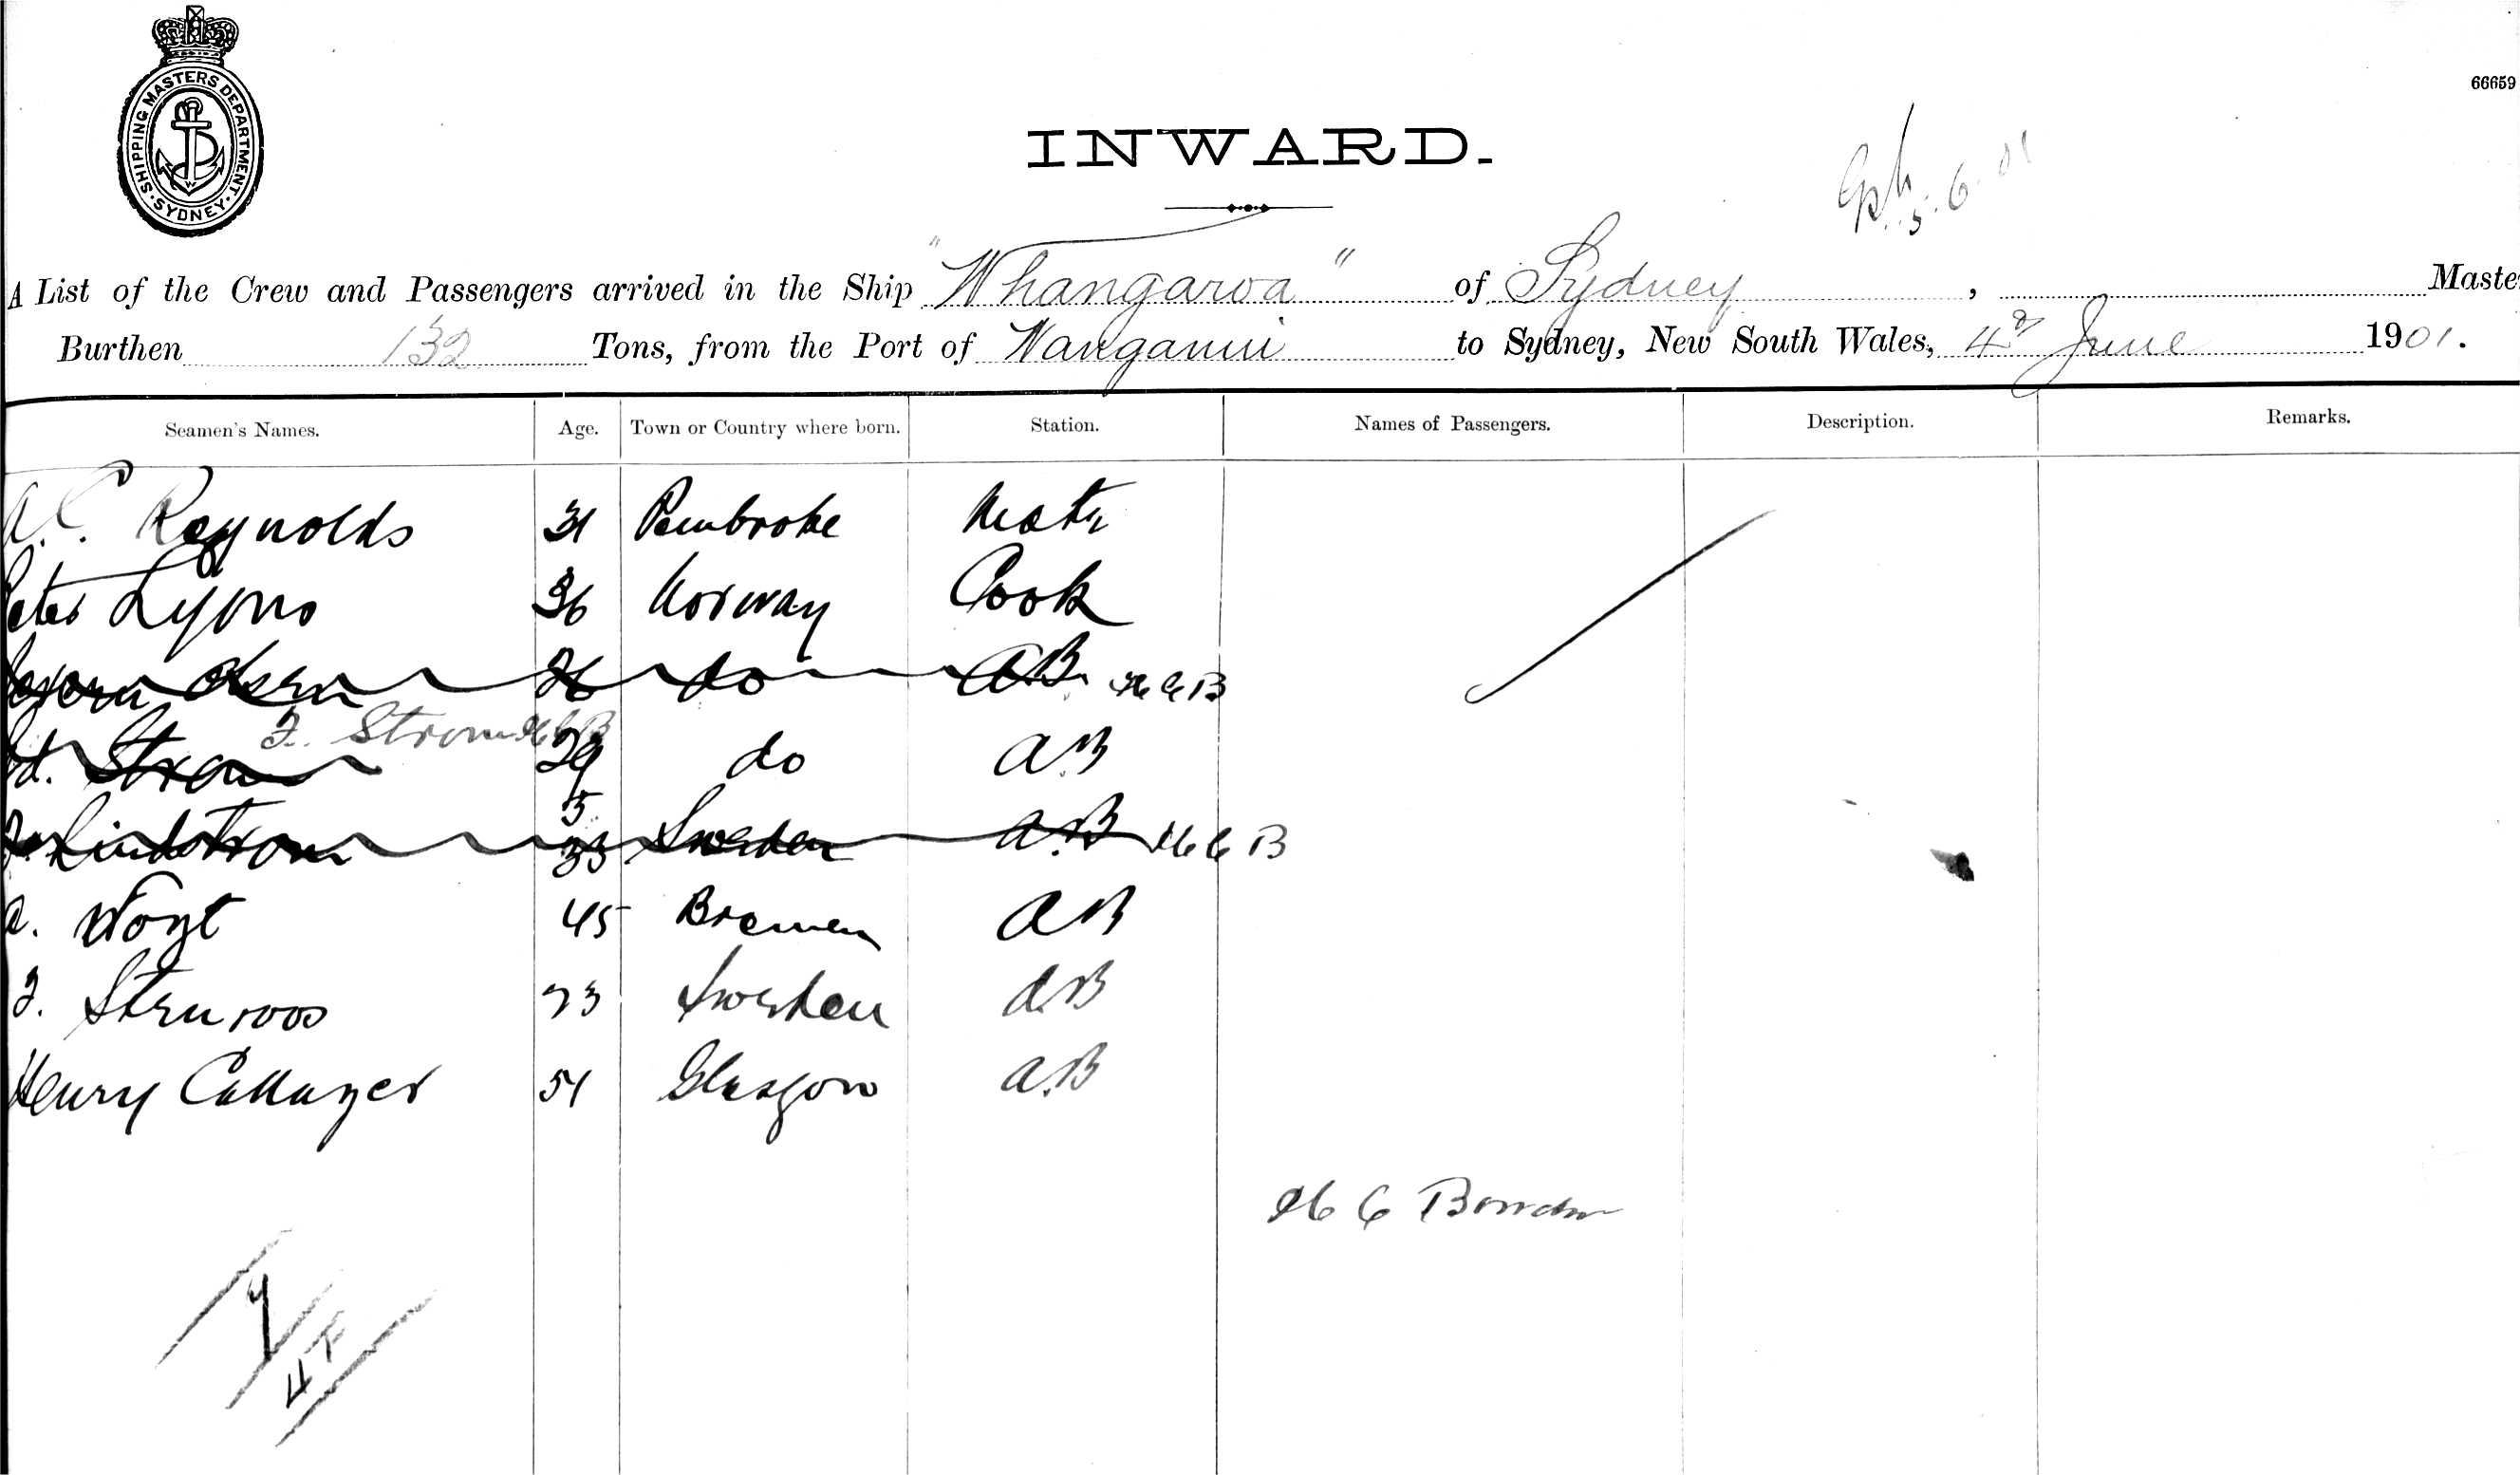 SHIPPING MASTERS DEPARTMENT. SYDNEY.
66659
INWARD.
5.6.01
A List of the Crew and Passengers arrived in the Ship "Whangaroa" of Sydney, Maste
Burthen 132 Tons, from the Port of Wanganui to Sydney, New South Wales, 4th June 1901.
Seamen's Names. Age. Town or Country where born. Station. Names of Passengers. Description. Remarks.
A. C. Reynolds 31 Pembroke Mate
Peter Lyons 36 Norway Cook
Olsen 26 do A.B. H C B
Strom H C B
Strom 29 do A.B
Lindstrom 33 Sweden A.B H C B
A. Voyt 45 Bremen AB
23 Sweden A.B
Henry 51 Glasgow A.B
H C